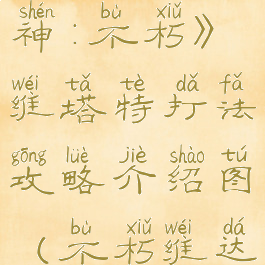 shén bù xiǔ
神：不朽》
wéi tǎ tè dǎ fǎ
维塔特打法
gōng lüè jiè shào tú
攻略介绍图
bù xiǔ wéi dá
（不朽维达